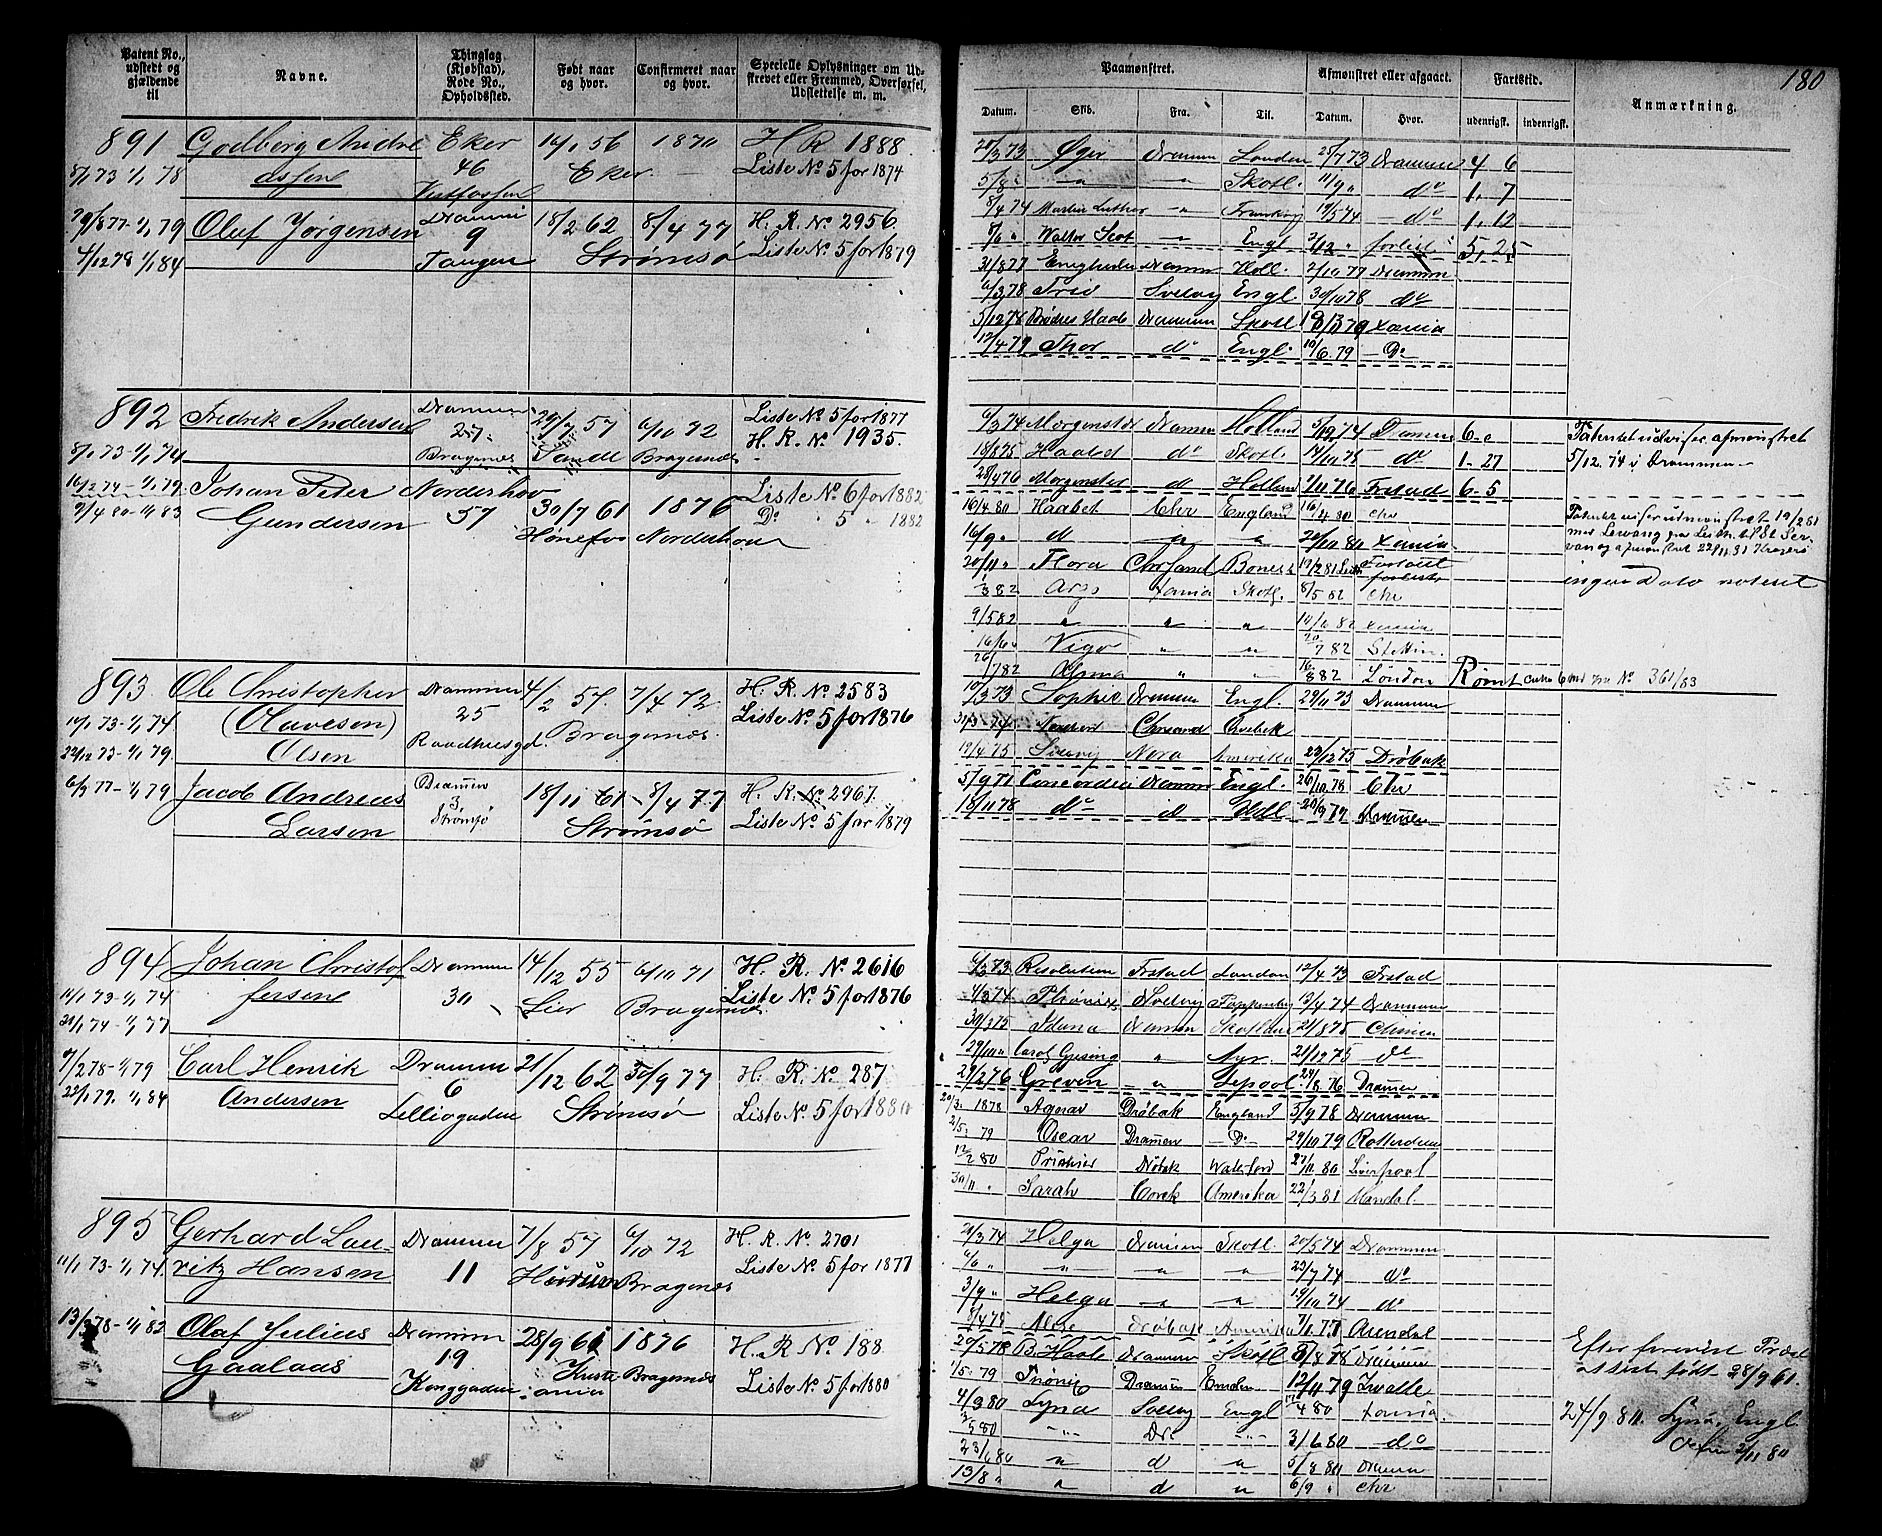 180
Patent No., udstedt og gjældende til
Navne.
Thinglag (Kjøbstad), Rode No., Opholdssted.
Født naar og hvor.
Confirmeret naar og hvor.
Specielle Oplysninger om Udskrevet eller Fremmed, Overførsel, Udslettelse m. m.
Paamønstret.
Afmønstret eller afgaaet.
Fartstid.
Anmærkning.
Datum. Skib. Fra. Til. Datum. Hvor. udenrigsk. indenrigsk.
891 Godberg Andre Eker 16/1 56 1870 H R 1888
8/1 73 1/1 78 assen 46 Eker Liste No 5 for 1874
Vestfossen
29/8 77-1/1 79 Olaf Jørgensen 9 18/2 62 8/4 77 H. R. No 2956
4/12 78 1/1 84 Tangen Strømsø Liste No 5 for 1879
892 Fredrik Andersen Drammen 29/7 57 6/10 72 Liste No 5 for 1877
8/1 73-1/1 74 27 Sande Bragernes H. R. No 1935.
Bragernes
16/2 74-1/1 79 Johan Peter Norderhov 30/7 61 1876 Liste No 6 for 1882
9/4 80-1/1 83 Gundersen 57 Hønefos Norderhov Do 5 1882
893 Ole Christopher Drammen 4/2 57. 7/4 72 H. R. No 2583
10/1 73-1/1 74 (Olavesen) 25 Bragernes Liste No 5 for 1876
22/12 73-1/1 79. Olsen Raadhusgd.
6/9 77-1/1 79 Jacob Andreas 3 18/11 61 8/4 77 H. R. No 2967.
Larsen Strømsø Strømsø Liste No 5 for 1879
894 Johan Christof Drammen 14/12 55 6/10 71 H. R. No 2616
11/1 73-1/1 74 fersen 30 Lier Bragernes Liste No 5 for 1876
1/1 77
9/2 78-1/1 79 Carl Henrik Drammen 21/12 62 30/9 77 H. R. No 287
22/1 79. 1/1 84 Andersen 6 Strømsø Liste No 5 for 1880
895 Gerhard Lau- Drammen 7/8 57 6/10 72 H. R. No 2701
11/1 73-1/1 74 ritz Hansen 11 Hurum Bragernes Liste No 5 for 1877
13/3 78-1/1 83 Olaf Julius Drammen 28/9 61 1876 H. R No 188
Gaalaas 19 Kristiania Bragernes Liste No 5 for 1880
Konggaden
20/3 73 Øgir Drammen London 25/7 73 Drammen 4 6
5/8 " " Skotl. 11/9 " do 1, 7
8/4 74 Martin Luther " 19/5 74 do 1, 12
8/6 " Walter Skot " Engl 2/12 " forlist 5, 25
31/8 77 Enigheden Drammen Holl. 2/10 77 Drammen
6/3 78 Trio Svelvig Engl. 30/10 78 do
5/12 78 Brødres Haab Drammen Skotl Xania
12/4 79 Thor do Engl. 10/6. 79 Do
6/3 74 Morgenster Drammen Holland 5/12 74 Drammen 6-0 Patentet udviser afmønstret
18/8 75 Haabet do Skotl. 14/10 75 do 1-27 5/12. 74 i Drammen
28/4 76 Morgenster d Holland 7/11 76 Frstad 6-5
10/4 80 Haabet Chr England chr
16/9 " d " " 24/10 80 Xania
20/11 " Flora Chrsand 19/2 81 Forladt forlist
3 82 Argo Xania Skotl. 8/5 82 chr ingen Dato noteret
9/5 82 " " " 14/6 82 Xania
16/6 " Vigo " " 20/7 82 Stettin.
26/7 82 Alma " " London Rømt No 361/83
10/3 73 Sophie Drammen Engl. 29/11 73 Drammen
Chrsand Qvebek
19/4 75 Nora Amerika 29/12 75 Drøbak
5/9 71 Concordia Drammen Engl. 26/10 78 Chr
18/11 78 do d Skotl 20/9 79 Drammen
6/3 73 Resolution Frstad London 12/4 73 Frstad
4/3 74 Phønix Svelvig 13/4 74 Drammen
30/3 75 Iduna Drammen Skotland 21/8 75
29/10 " Carol Gusing " Ayr. 21/12 75 do
29/2 76 Greven " Lpool 24/8 76 Drammen
20/3 1878 Agnar Drøbak England 5/9 78 Drammen
2/5. 79 Oscar Drammen Do 29/10 79 Rotterdam
12/2 80 Drøbak Waterford 27/11 80 Liverpool
30/11 " Sarah Corek Amerika 22/3 81 Mandal.
21/3 74 Helga Drammen Skotl. 20/5 74 Drammen
6/6 " " " " 23/7 74 do
3/9 " Helga " " 19/10 74 do
8/4 75 Drøbak Amerika 7/1 77 Arendal
27/5 78 B. Haab Drammen Skotl 8/8 78 Drammen
1/5. 79 Drammen Emden 12/11 79 Zwolle
4/3 80 Lyna Svelvig Engl 4 80 Xania
5 80 " Dr. " 3/6 80 do
23/6 80 " d " 5/8 80 Drammen
13/8 " " d " 6/9 " chr
Efter forevist Præste
attest født 28/9 61.
24/9 80. Lyna, Engl
2/11 80